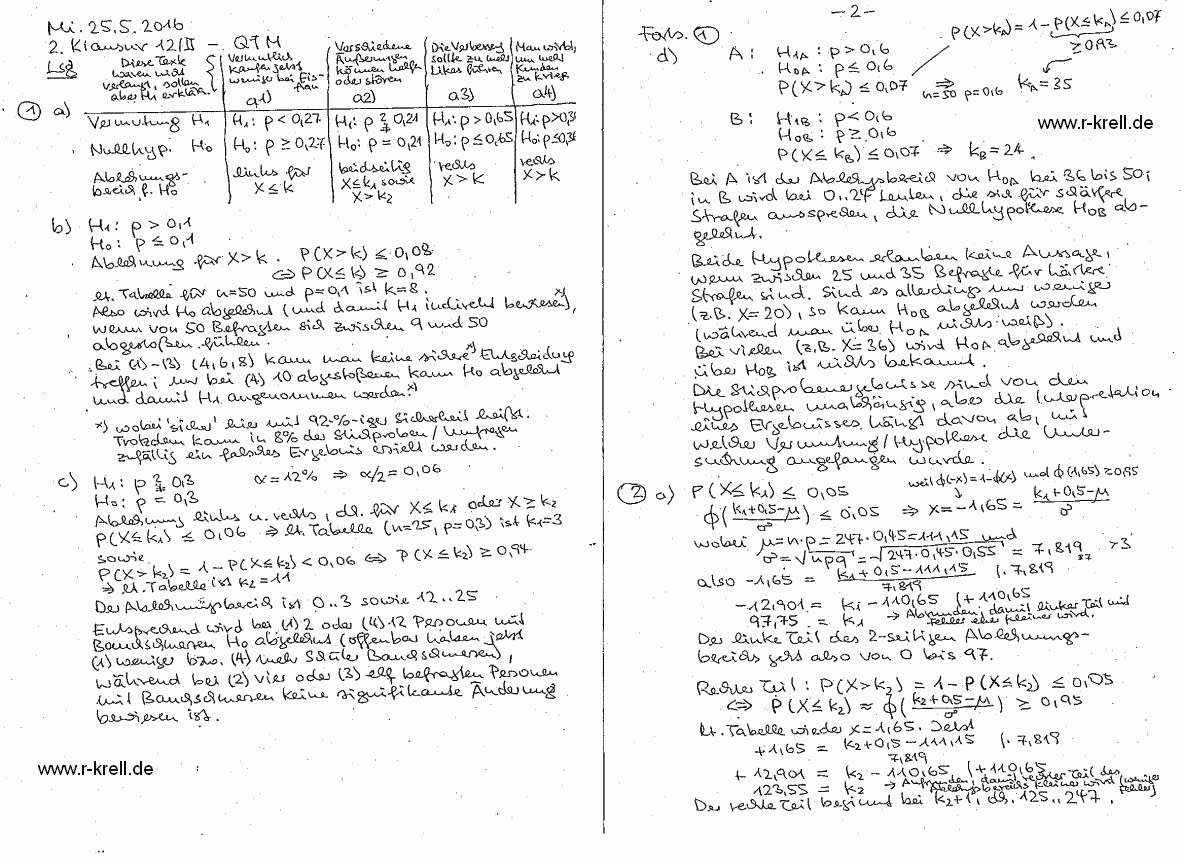 Mi. 25.5.2016
2. Klausur 12/II – Q1 M
Lsg
Diese Texte
waren nicht
verlangt, sollen
aber H₁ erklär.
Vermutlich
kaufen jetzt
weniger bei Eis-
frau
a1)
Verschiedene
Äußerungen
können helfen
oder stören
a2)
Die Verbesserg
sollte zu mehr
Likes führen
a3)
Man wirbt,
um mehr
Kunden
zu krieg.
a4)
① a)
Vermutung H₁ H₁: p < 0,27 H₁: p ≷ 0,21 H₁: p > 0,65 H₁: p > 0,3
Nullhyp. H₀ H₀: p ≥ 0,27 H₀: p = 0,21 H₀: p ≤ 0,65 H₀: p ≤ 0,3
Ablehnungs-
bereich f. H₀
links für
X ≤ k
beidseitig
X ≤ k₁ sowie
X > k₂
rechts
X > k
rechts
X > k
b) H₁: p > 0,1
H₀: p ≤ 0,1
Ablehnung für X > k. P(X > k) ≤ 0,08
⇔ P(X ≤ k) ≥ 0,92
lt. Tabelle für n=50 und p=0,1 ist k=8.
Also wird H₀ abgelehnt (und damit H₁ indirekt bewiesen)*⁾,
wenn von 50 Befragten sich zwischen 9 und 50
abgestoßen fühlen.
Bei (1)–(3) (4,6,8) kann man keine sichere*⁾ Entscheidung
treffen; nur bei (4) 10 abgestoßenen kann H₀ abgelehnt
und damit H₁ angenommen werden.*⁾
*) wobei 'sicher' hier mit 92-%-iger Sicherheit heißt.
Trotzdem kann in 8% der Stichproben/Umfragen
zufällig ein falsches Ergebnis erzielt werden.
c) H₁: p ≷ 0,3 α = 12% ⇒ α/2 = 0,06
H₀: p = 0,3
Ablehnung links u. rechts, d.h. für X ≤ k₁ oder X ≥ k₂
P(X ≤ k₁) ≤ 0,06 ⇒ lt. Tabelle (n=25, p=0,3) ist k₁=3
sowie
P(X > k₂) = 1 – P(X ≤ k₂) < 0,06 ⇔ P(X ≤ k₂) ≥ 0,94
⇒ lt. Tabelle ist k₂ = 11
Der Ablehnungsbereich ist 0..3 sowie 12..25
Entsprechend wird bei (1) 2 oder (4) 12 Personen mit
Bauchschmerzen H₀ abgelehnt (offenbar haben jetzt
(1) weniger bzw. (4) mehr Schüler Bauchschmerzen),
während bei (2) vier oder (3) elf befragten Personen
mit Bauchschmerzen keine signifikante Änderung
bewiesen ist.
www.r-krell.de
– 2 –
Forts. ①
P(X > k_A) = 1 – P(X ≤ k_A) ≤ 0,07
≥ 0,93
d) A: H₁A: p > 0,6
H₀A: p ≤ 0,6
P(X > k_A) ≤ 0,07 ⇒ k_A = 35
n=50 p=0,6
B: H₁B: p < 0,6
H₀B: p ≥ 0,6
P(X ≤ k_B) ≤ 0,07 ⇒ k_B = 24.
www.r-krell.de
Bei A ist der Ablehngsbereich von H₀A bei 36 bis 50;
in B wird bei 0..24 Leuten, die sich für schärfere
Strafen aussprechen, die Nullhypothese H₀B ab-
gelehnt.
Beide Hypothesen erlauben keine Aussage,
wenn zwischen 25 und 35 Befragte für härtere
Strafen sind. Sind es allerdings nur weniger
(z.B. X=20), so kann H₀B abgelehnt werden
(während man über H₀A nichts weiß).
Bei vielen (z.B. X=36) wird H₀A abgelehnt und
über H₀B ist nichts bekannt.
Die Stichprobenergebnisse sind von den
Hypothesen unabhängig, aber die Interpretation
eines Ergebnisses hängt davon ab, mit
welcher Vermutung/Hypothese die Unter-
suchung angefangen wurde.
② a) P(X ≤ k₁) ≤ 0,05 weil ϕ(-x)=1-ϕ(x) und ϕ(1,65)≥0,95
ϕ((k₁+0,5–μ)/σ) ≤ 0,05 ⇒ x = –1,65 = (k₁+0,5–μ)/σ
wobei μ = n·p = 247·0,45 = 111,15 und
σ = √npq = √247·0,45·0,55 = 7,819 > 3
also –1,65 = (k₁+0,5–111,15)/7,819 |·7,819
–12,901 = k₁ – 110,65 |+110,65
97,75 = k₁ → Abrunden, damit linker Teil und
Fehler eher kleiner wird.
Der linke Teil des 2-seitigen Ablehnungs-
bereichs geht also von 0 bis 97.
Rechter Teil: P(X > k₂) = 1 – P(X ≤ k₂) ≤ 0,05
⇔ P(X ≤ k₂) ≈ ϕ((k₂+0,5–μ)/σ) ≥ 0,95
Lt. Tabelle wieder x = 1,65. Jetzt
+1,65 = (k₂+0,5–111,15)/7,819 |·7,819
+12,901 = k₂ – 110,65 |+110,65
123,55 = k₂ → Aufrunden, damit rechter Teil des
Ablehngsbereichs kleiner wird (weniger
Fehler)
Der rechte Teil beginnt bei k₂+1, d.h. 125..247.